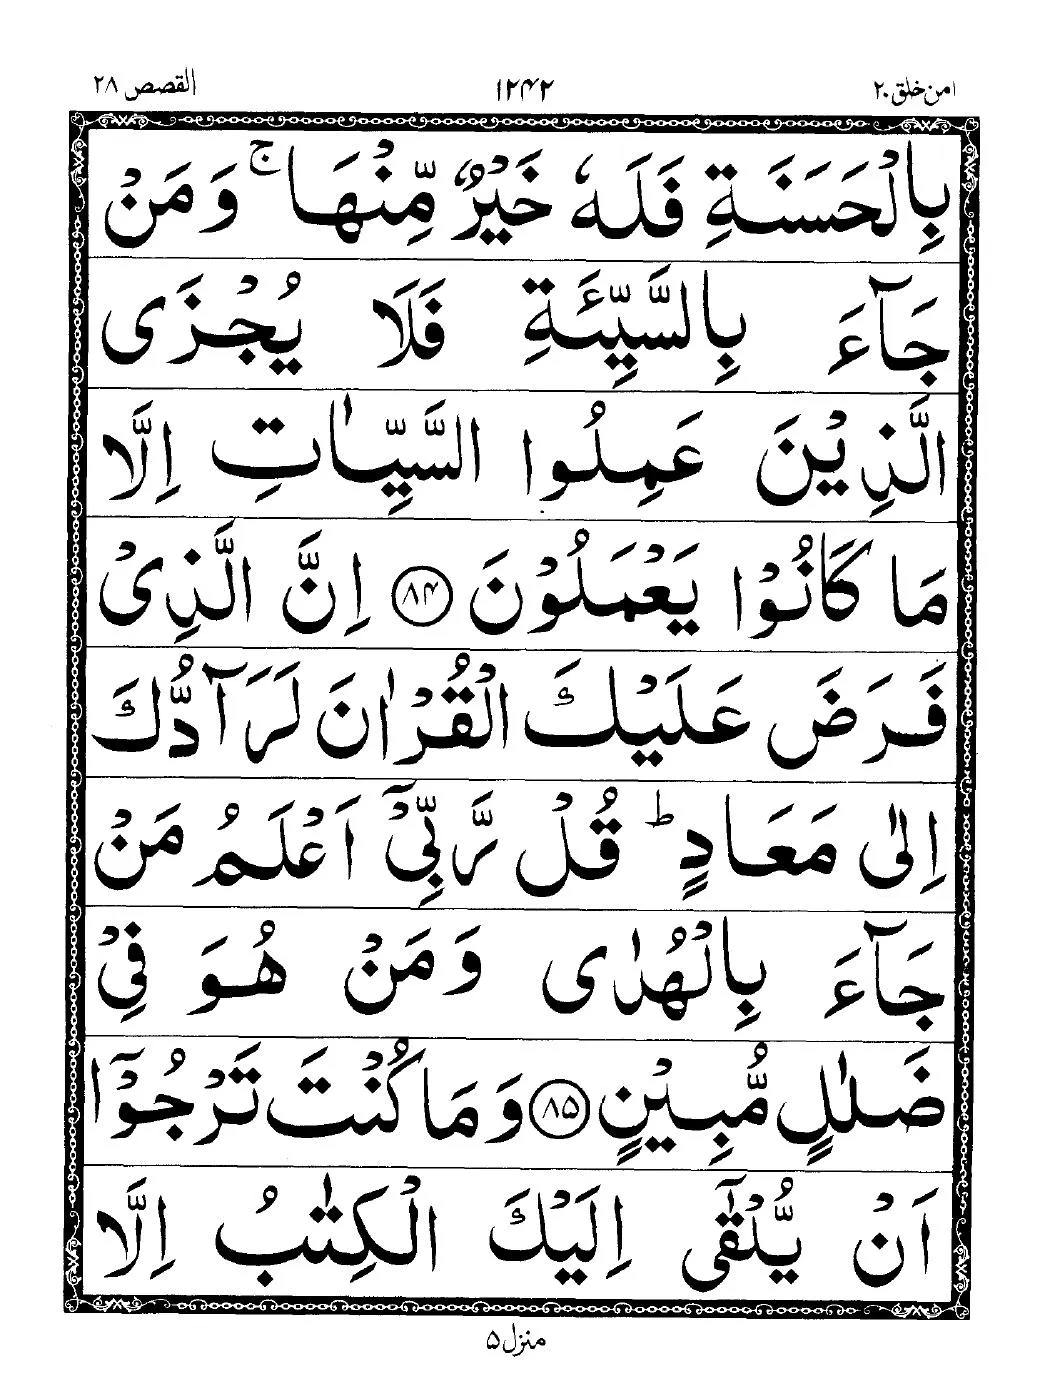 امن خلق ۲۰ ۱۲۴۲ القصص ۲۸
بِالْحَسَنَةِ فَلَهٗ خَيْرٌ مِّنْهَا ۚ وَمَنْ
جَآءَ بِالسَّيِّئَةِ فَلَا يُجْزَى
الَّذِيْنَ عَمِلُوا السَّيِّاٰتِ اِلَّا
مَا كَانُوْا يَعْمَلُوْنَ ۸۴ اِنَّ الَّذِىْ
فَرَضَ عَلَيْكَ الْقُرْاٰنَ لَرَآدُّكَ
اِلٰى مَعَادٍ ؕ قُلْ رَّبِّىْٓ اَعْلَمُ مَنْ
جَآءَ بِالْهُدٰى وَمَنْ هُوَ فِىْ
ضَلٰلٍ مُّبِيْنٍ ۸۵ وَمَا كُنْتَ تَرْجُوْٓا
اَنْ يُّلْقٰٓى اِلَيْكَ الْكِتٰبُ اِلَّا
منزل ۵